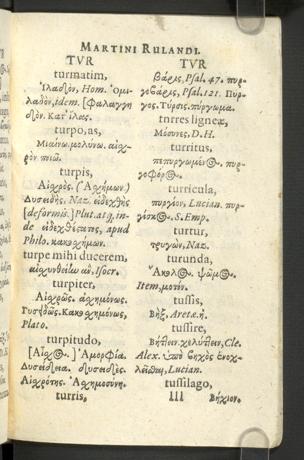 MARTINI RULANDI.
TVR
turmatim,
Ἰλαδὸν, Hom. Ὁμι-
λαδὸν, idem. [Φαλαγγη
δὸν. Κατ' ἴλας.
turpo, as,
Μιαίνω. μολύνω. αἰσχ-
ρὸν ποιῶ.
turpis,
Αἰσχρὸς. (Ἀσχήμων.)
Δυσειδὴς. Naz. εἰδεχθὴς
[deformis.] Plut. at q. in-
de εἰδεχθέστατος, apud
Philo. κακοχήμων.
turpe mihi ducerem,
αἰσχυνθείλω ἂν. Isocr.
turpiter,
Αἰσχρῶς. ἀσχημόνως.
Κακοσχημόνως,
Plato.
turpitudo,
[Αἶσχος.] Ἀμορφία.
Δυσείδεια. δυσειδὲς.
Αἰσχρότης. Ἀσχημοσύνη.
turris,
TVR
βάρις, Psal. 47. πυρ-
γοβάρις, Psal. 121. Πύρ-
γος. Τύρσις. πύργωμα.
turres ligneæ,
Μόσυνες, D. H.
turritus,
πεπυργωμένος. πυρ-
γοφόρος.
turricula,
πυργίον, Lucian. πυρ-
γίσκος. S. Emp.
turtur,
τρυγὼν, Naz.
turunda,
Ἄκολος. ψωμὸς.
Item, μοτόν.
tussis,
Βὴξ, Aretæ. ἡ.
tussire,
Βήττειν. χελύττειν, Cle.
Alex. ὑπὸ βηχὸς ἐνοχ-
λεῖσθαι, Lucian.
tussilago,
lll Βήχιον.